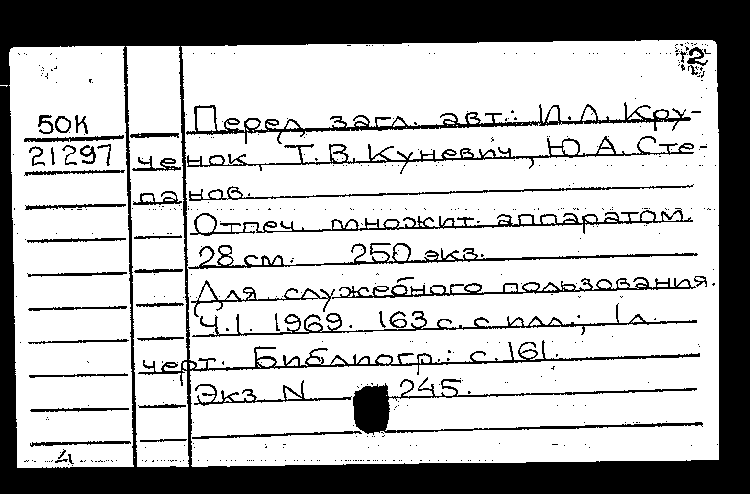 2
50К Перед загл. авт.: И.Л. Кру-
21297 ченок, Т.В. Куневич, Ю.А. Сте-
панов.
Отпеч. множит. аппаратом.
28 см. 250 экз.
Для служебного пользования.
Ч.1. 1969. 163 с. с илл.; 1 л.
черт. Библиогр.: с. 161.
Экз N 245.
4